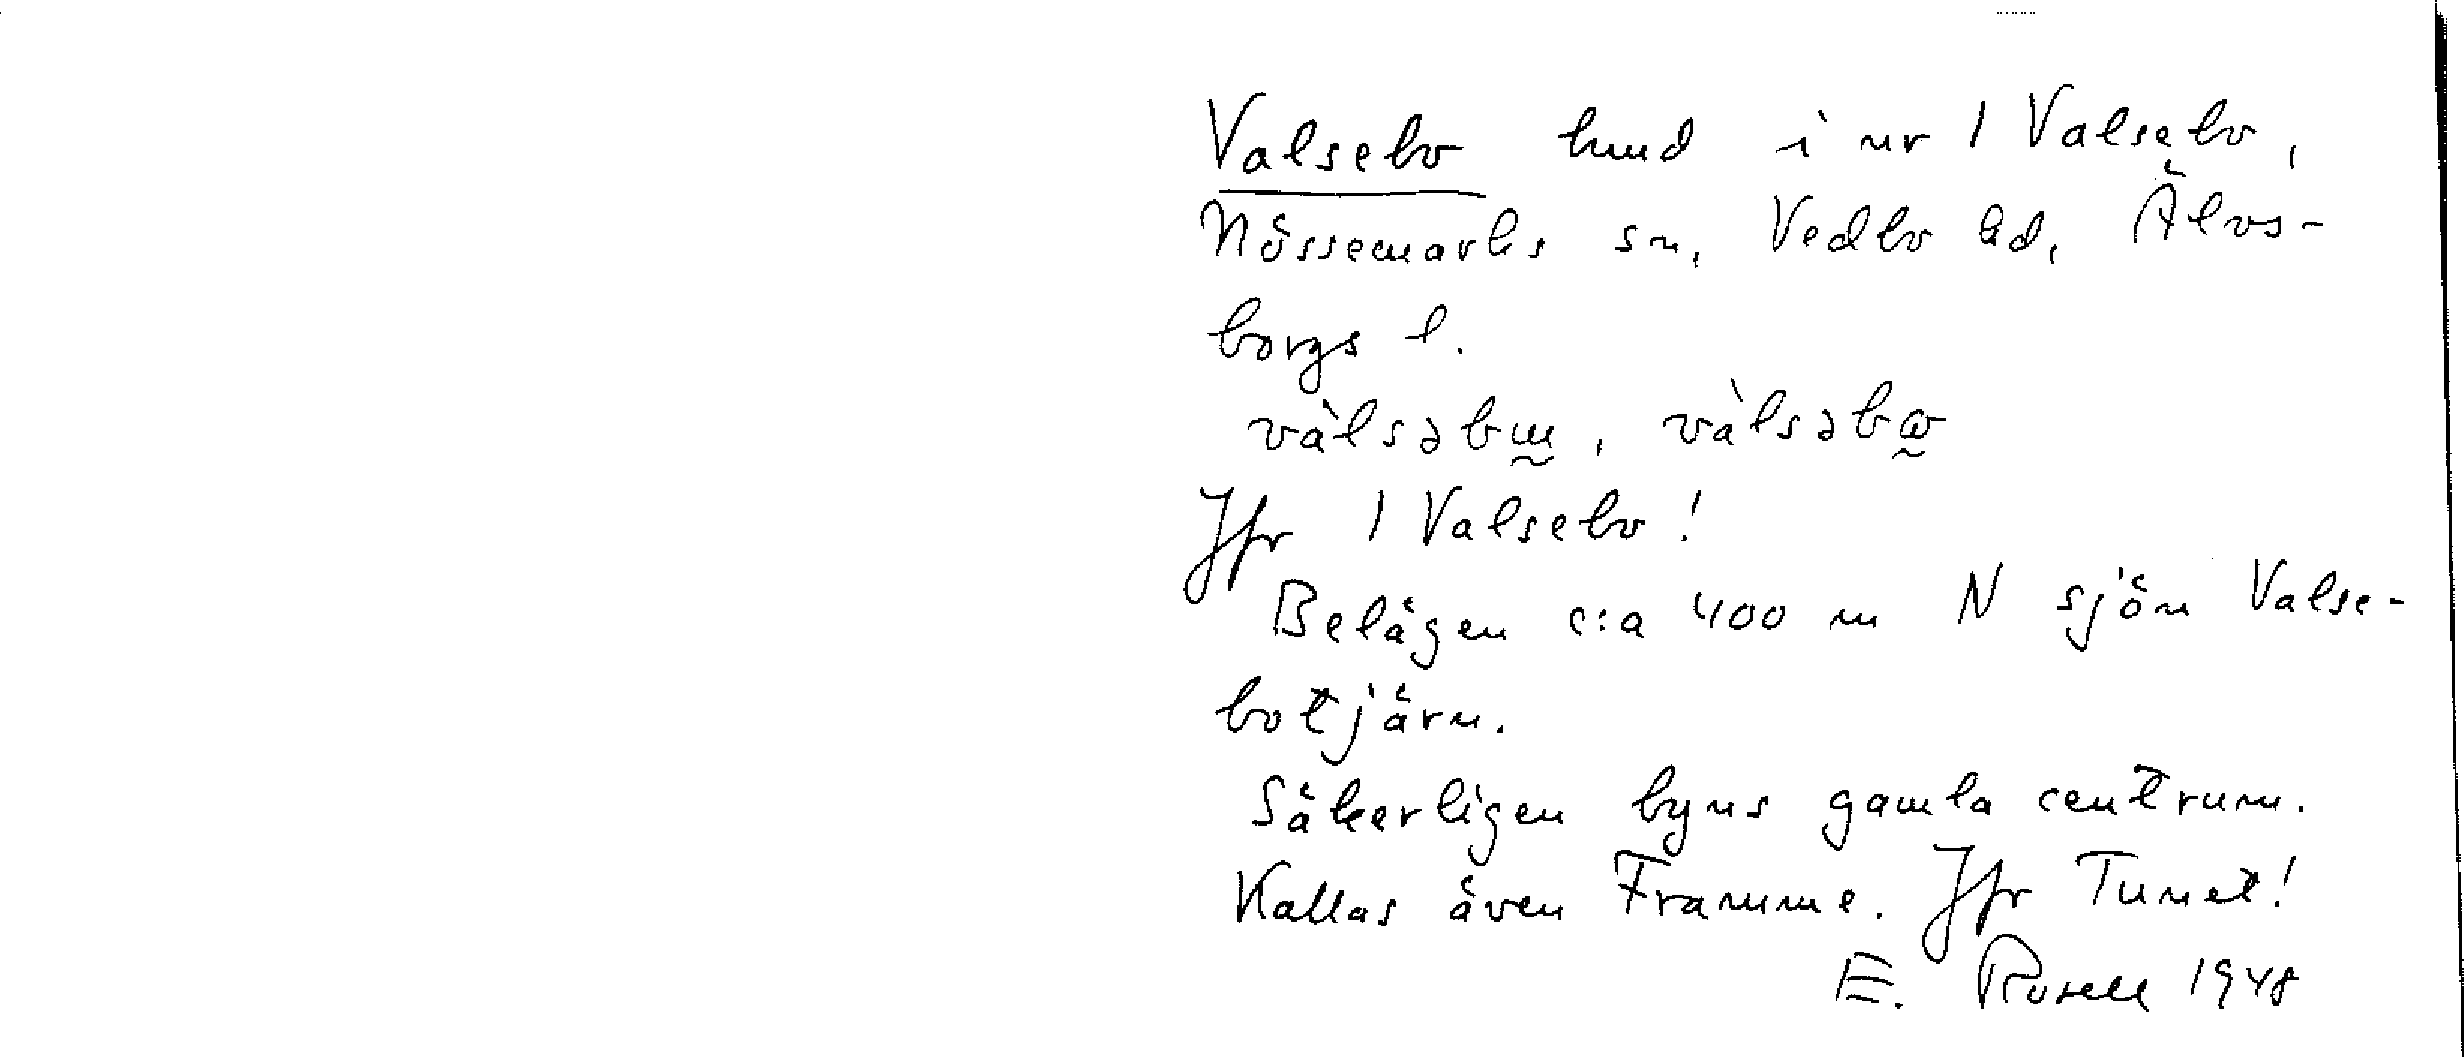 Valsebo hmd i nr 1 Valsebo,
Nössemarks sn, Vedbo hd, Älvs-
borgs l.
vàlsəbɯ̰, vàlsəbω̰
Jfr 1 Valsebo!
Belägen c:a 400 m N sjön Valse-
botjärn.
Säkerligen byns gamla centrum.
Kallas även Framme. Jfr Tunet!
E. Rosell 1948